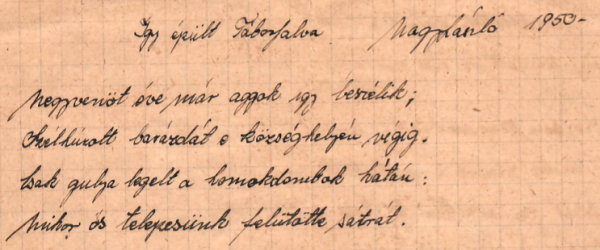 Így épült Táborfalva Nagy László 1950-
Negyvenöt éve már aggok így beszélik;
Szélhúzott barázdát e községhelyén végig.
Csak gulya legelt a homokdombok hátán:
Mikor ős telepesünk felütötte sátrát.